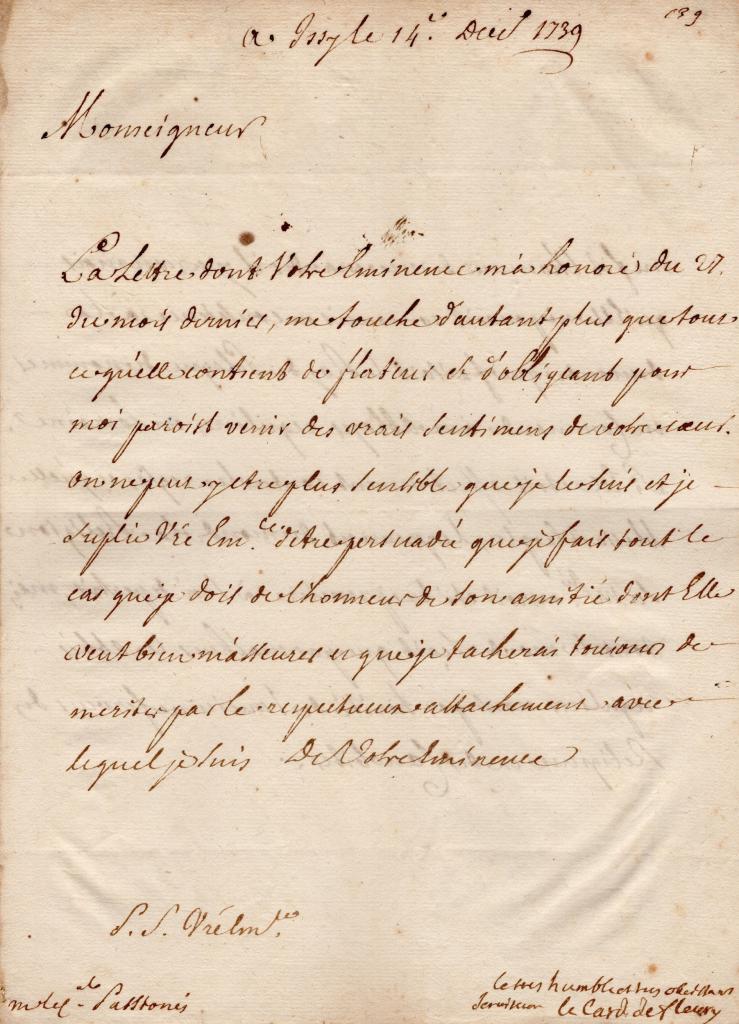 a Issy le 14.e Decr 1739
139
Monseigneur
La Lettre dont Votre Eminence m'a honoré du 27.
du mois dernier, me touche d'autant plus que tout
ce qu'elle contient de flateur et d'obligeant pour
moi paroist venir des vrais sentimens de votre cœur.
on ne peut y etre plus sensible que je le suis et je
suplie Vre Em.ce d'etre persuadée que je fais tout le
cas que je dois de l'honneur de son amitié dont Elle
veut bien m'asseurer et que je tacherai toujours de
meriter par le respectueux attachement avec
lequel je suis De Votre Eminence
Vre Em.ce
le tres humble et tres obeissant
serviteur le Card. de fleury